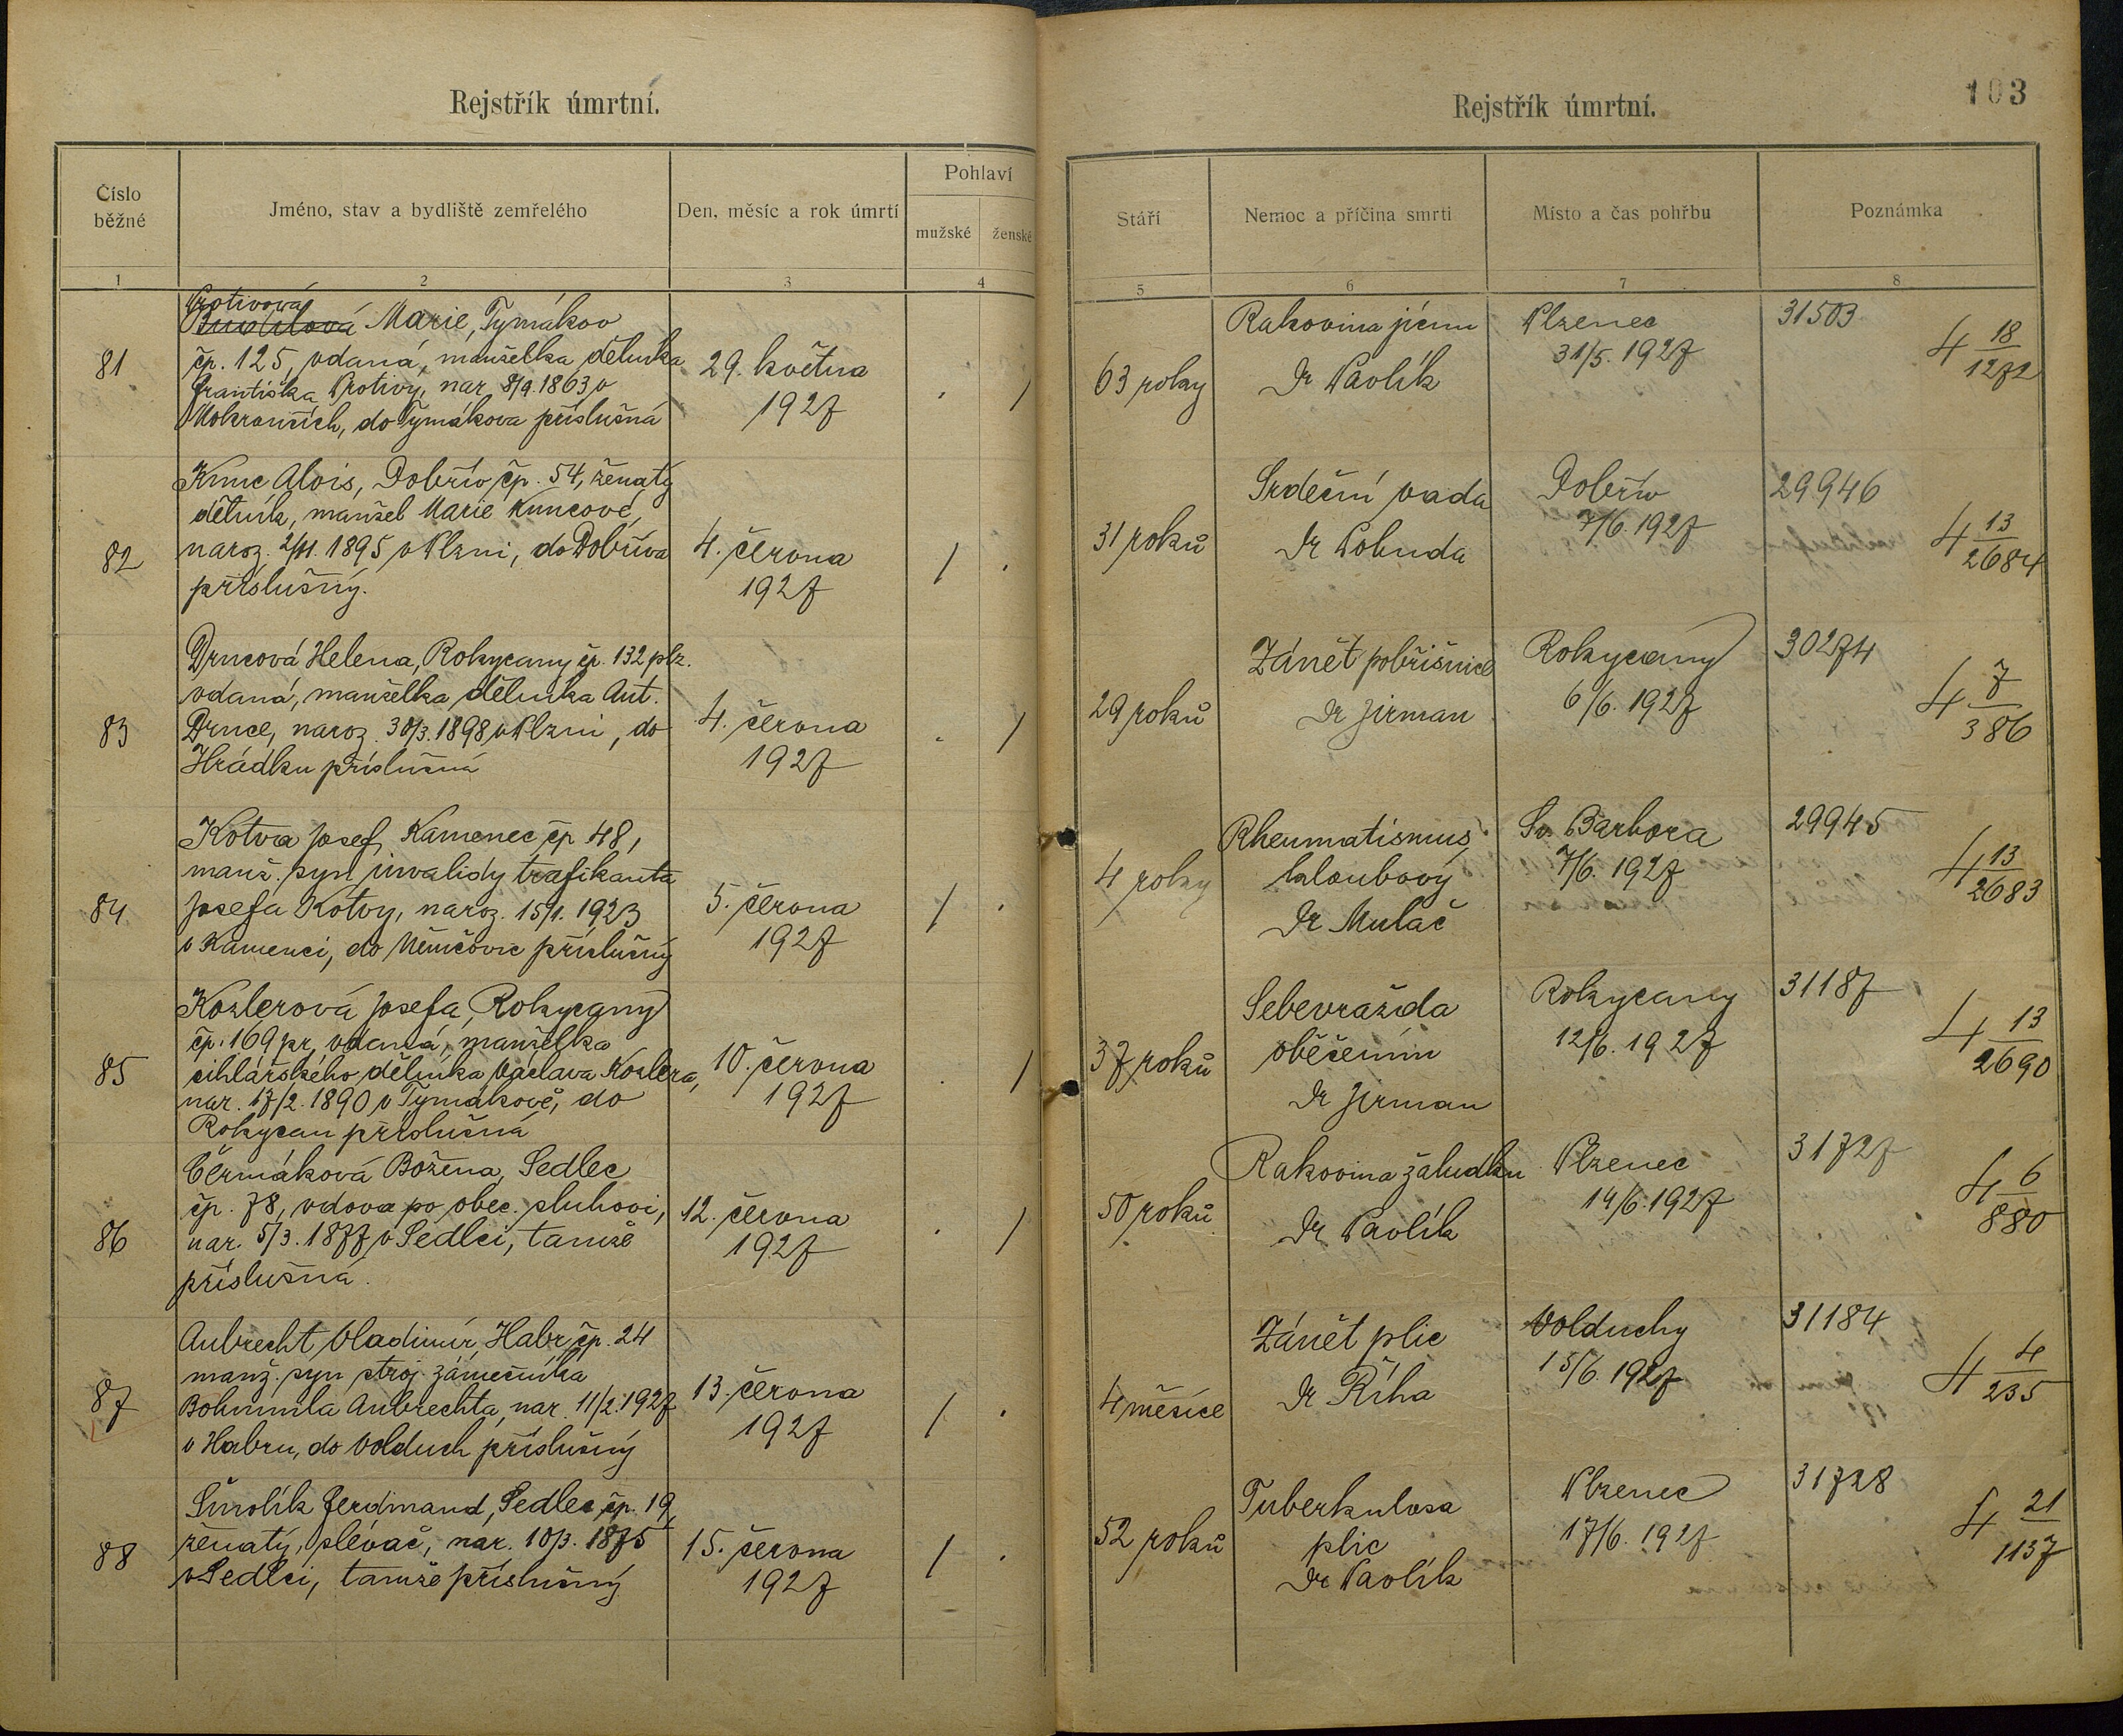 Rejstřík úmrtní.
Číslo běžné
Jméno, stav a bydliště zemřelého
Den, měsíc a rok úmrtí
Pohlaví
mužské
ženské
1
2
3
4
Protivová
Marie, Tymákov
81
čp. 125, vdaná, manželka dělníka
Františka Protivy, nar. 8/9. 1863 v
Mokrouších, do Tymákova příslušná
29. května
1927
Kunc Alois, Dobřív čp. 54, ženatý
dělník, manžel Marie Kuncové,
82
naroz. 2/11. 1895 v Plzni, do Dobříva
příslušný.
4. června
1927
Drncová Helena, Rokycany čp. 132 plz.
vdaná, manželka dělníka Ant.
83
Drnce, naroz. 30/3. 1898 v Plzni, do
Hrádku příslušná
4. června
1927
Kotva Josef, Kamenec čp 48,
manž. syn invalidy trafikanta
84
Josefa Kotvy, naroz. 15/1. 1923
v Kamenci, do Němčovic příslušný
5. června
1927
Kozlerová Josefa, Rokycany
čp. 169 pr, vdaná, manželka
85
cihlářského dělníka Václava Kozlera,
nar. 17/2. 1890 v Tymákově, do
Rokycan příslušná
10. června
1927
Čermáková Božena, Sedlec
čp. 78, vdova po obec. sluhovi,
86
nar. 5/3. 1877 v Sedlci, tamže
příslušná.
12. června
1927
Aubrecht Vladimír, Habr čp. 24
manž. syn stroj. zámečníka
87
Bohumila Aubrechta, nar. 11/2. 1927
v Habru, do Volduch příslušný
13. června
1927
Ferdinand, Sedlec čp. 19,
88
ženatý, slévač, nar. 10/3. 1875
v Sedlci, tamže příslušný
15. června
1927
103
Rejstřík úmrtní.
Stáří
Nemoc a příčina smrti
Místo a čas pohřbu
Poznámka
5
6
7
8
63 roky
Rakovina jícnu
Dr Pavlík
Plzenec
31/5. 1927
31503
4 18/1272
31 roků
Srdeční vada
Dr Pobuda
Dobřív
7/6. 1927
29946
4 13/2684
29 roků
Zánět pobřišnice
Dr Jirman
Rokycany
6/6. 1927
30274
4 7/386
4 roky
Rheumatismus
kloubový
Dr Mulač
Sv. Barbora
7/6. 1927
29945
4 13/2683
37 roků
Sebevražda
oběšením
Dr Jirman
Rokycany
12/6. 1927
31187
4 13/2690
50 roků
Rakovina žaludku
Dr Pavlík
Plzenec
14/6. 1927
31727
4 6/880
4 měsíce
Zánět plic
Dr Říha
Volduchy
15/6. 1927
31184
4 4/235
52 roků
Tuberkulosa
plic
Dr Pavlík
Plzenec
17/6. 1927
31728
4 21/1137